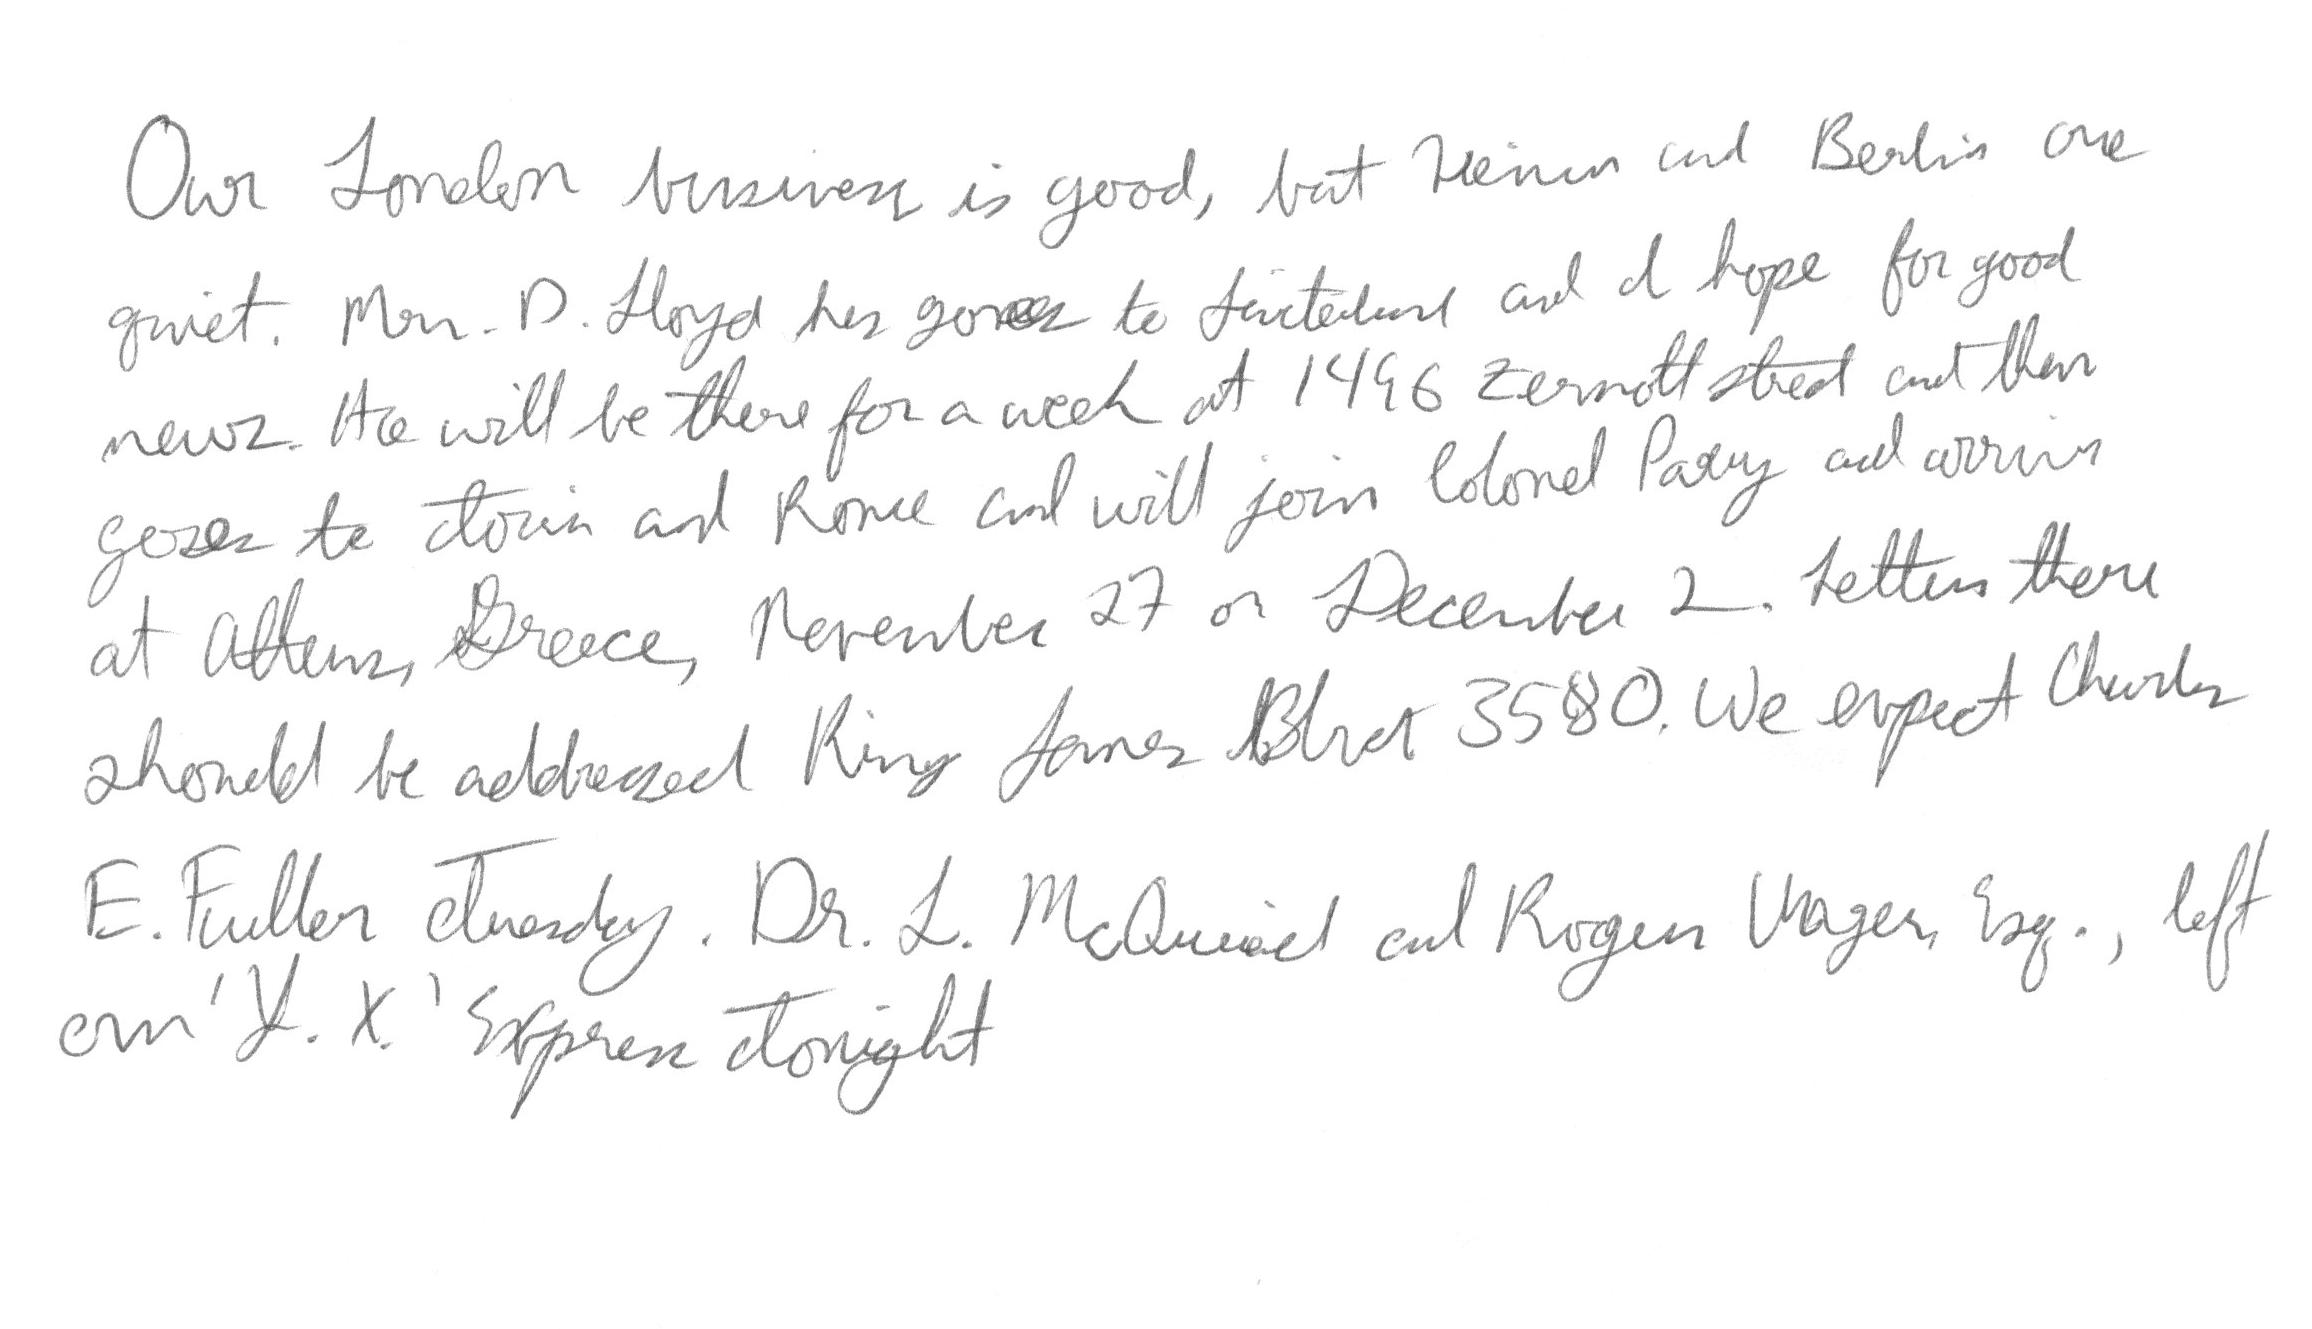 Our London business is good, but Vienna and Berlin are
quiet. Mr. D. Lloyd has gone to Switzerland and I hope for good
news. He will be there for a week at 1496 Zermott street and then
goes to Turin and Rome and will join Colonel Parry and arrive
at Athens, Greece, November 27 or December 2. Letters there
should be addressed King James Blvd 3580. We expect Charles
E. Fuller Tuesday. Dr. L. McQuaid and Roger Unger, Esq., left
on 'Y. X.' Express tonight